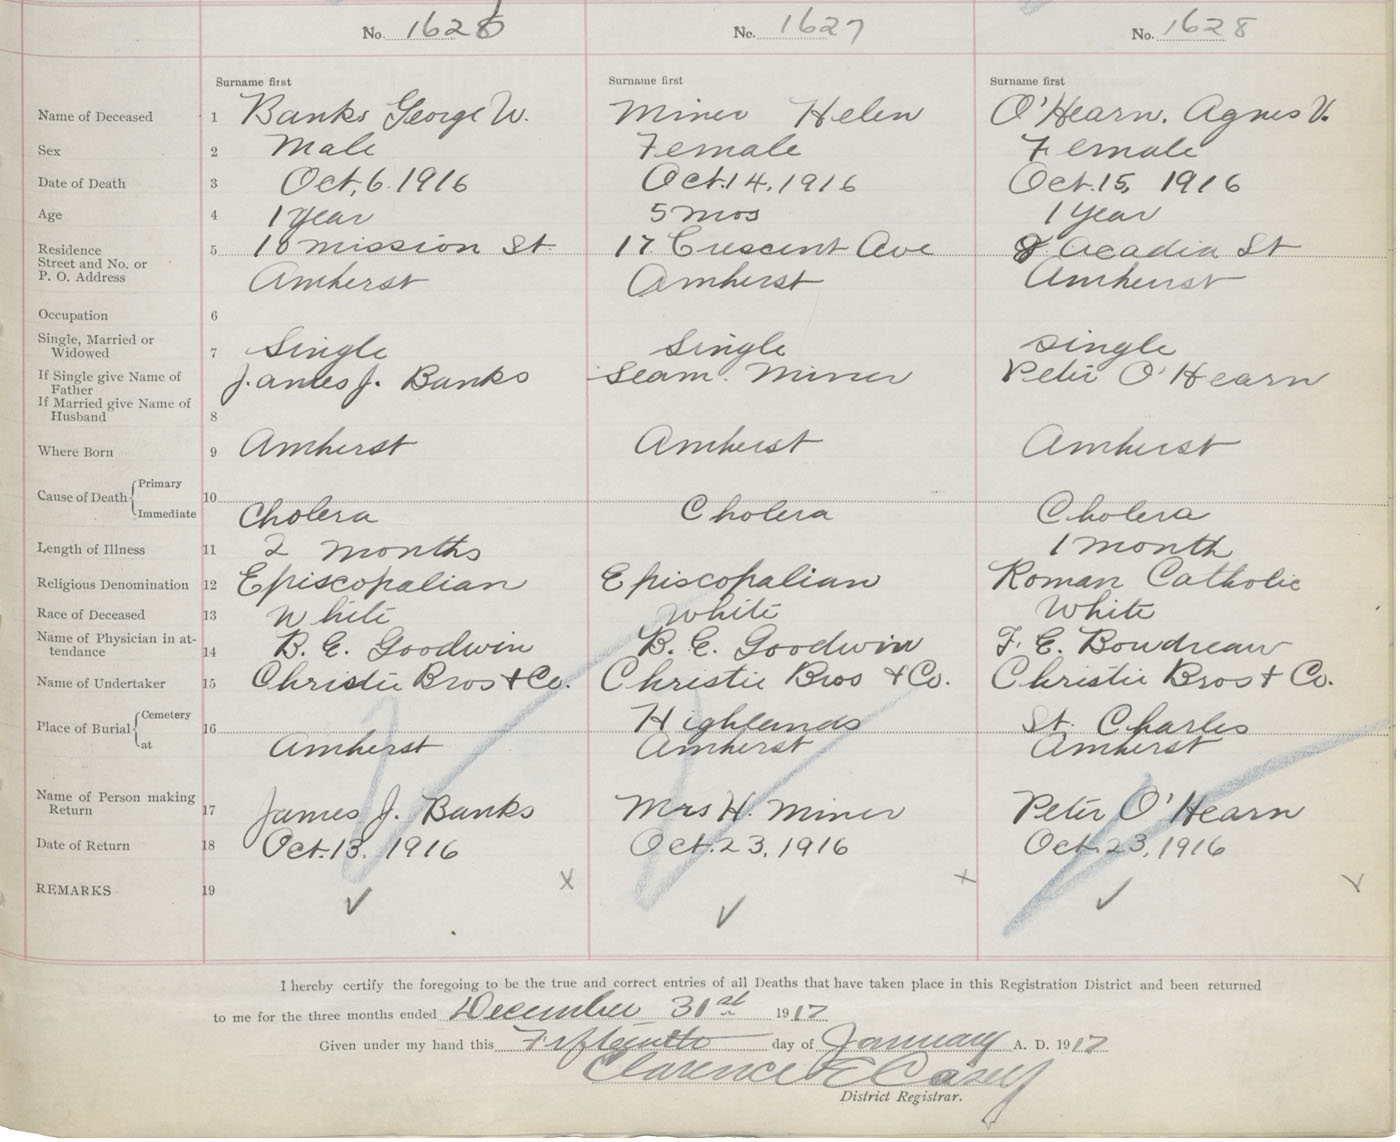 No. 1626 No. 1627 No. 1628
Surname first Surname first Surname first
Name of Deceased 1 Banks George W. Miner Helen O'Hearn. Agnes V.
Sex 2 Male Female Female
Date of Death 3 Oct. 6. 1916 Oct. 14, 1916 Oct. 15, 1916
Age 4 1 year 5 mos 1 year
Residence 5 18 Mission St 17 Crescent Ave 8 Acadia St
Street and No. or
P. O. Address Amherst Amherst Amherst
Occupation 6
Single, Married or
Widowed 7 Single Single Single
If Single give Name of
Father James J. Banks Seam. Miner Peter O'Hearn
If Married give Name of
Husband 8
Where Born 9 Amherst Amherst Amherst
Cause of Death Primary 10
Immediate Cholera Cholera Cholera
Length of Illness 11 2 months 1 month
Religious Denomination 12 Episcopalian Episcopalian Roman Catholic
Race of Deceased 13 White White White
Name of Physician in at-
tendance 14 B. E. Goodwin B. E. Goodwin F. E. Boudreau
Name of Undertaker 15 Christie Bros & Co. Christie Bros & Co. Christie Bros & Co.
Place of Burial Cemetery 16 Highlands St. Charles
at Amherst Amherst Amherst
Name of Person making
Return 17 James J. Banks Mrs H. Miner Peter O'Hearn
Date of Return 18 Oct. 13. 1916 Oct. 23, 1916 Oct. 23, 1916
REMARKS 19
I hereby certify the foregoing to be the true and correct entries of all Deaths that have taken place in this Registration District and been returned
to me for the three months ended December 31st 1917
Given under my hand this Fifteenth day of January A. D. 1917
Clarence E Casey
District Registrar.